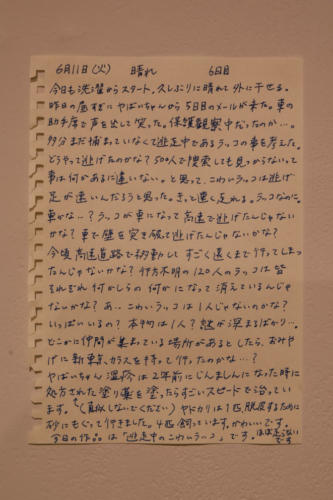 6月11日(火) 晴れ 6日目
今日も洗濯からスタート。久しぶりに晴れて外に干せる。
昨日の夜にやばいちゃんから5日目のメールが来た。車の
助手席で声を出して笑った。保護観察中だったのか…。
多分まだ捕まっていなくて逃走中であるラッコの事を考えた。
どうやって逃げたのかな?500人で捜索しても見つからないって
事は何かあるに違いない。と思って、こわいラッコは逃げ
足が速いんだろうと思った。きっと速く走れる。ラッコなのに。
車かな…?ラッコが車になって高速で逃げたんじゃない
かな?車で壁を突き破って逃げたんじゃないかな?
今頃高速道路で移動してすごく遠くまで行ってしまっ
たんじゃないかな?行方不明の120人のラッコは皆
それぞれ何かしらの何かになって消えているんじゃ
ないかな?あ…こわいラッコは1人じゃないのかな?
いっぱいいるの?本物は1人?謎が深まるばかり…。
どこかに仲間が集まっている場所があるとしたら、おみやげ
に新東京カラスを持って行ったのかな…?
やばいちゃん湿疹は2年前にじんましんになった時に
処方された塗り薬を塗ったらすごいスピードで治ってい
ます。(真似しないでください)ヤドカリは1匹、脱皮するために
砂にもぐって行きました。4匹飼っています。かわいいです。
今日の作品は「逃走中のこわいラッコ」です。ほぼ足りない
です